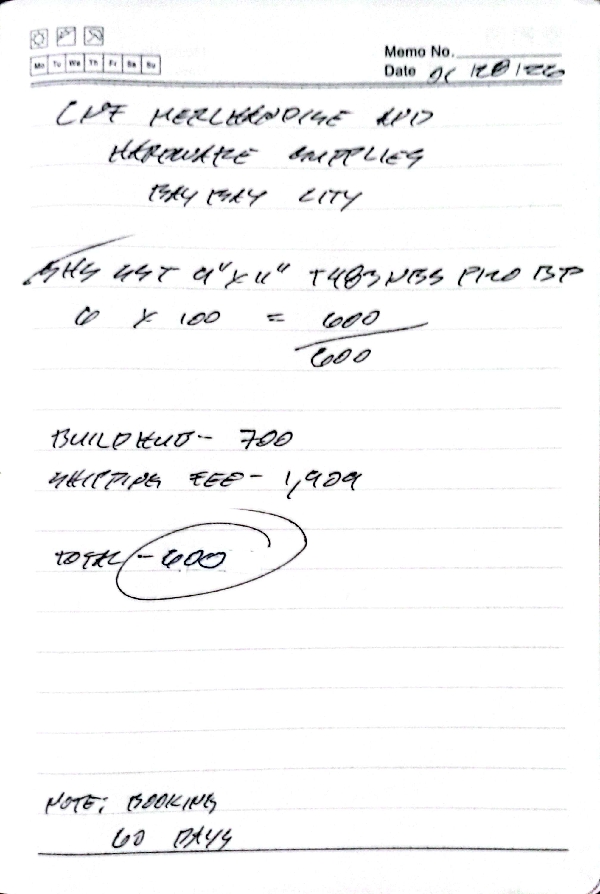 Mo Tu We Th Fr Sa Su
Memo No.
Date 01/28/26
CNF MERCHANDISE AND
HARDWARE SUPPLIES
BAYBAY CITY
4" X 4"
6 X 100 = 600
600
BUILDHUB - 700
SHIPPING FEE - 1,909
TOTAL - 600
NOTE: BOOKING
60 DAYS